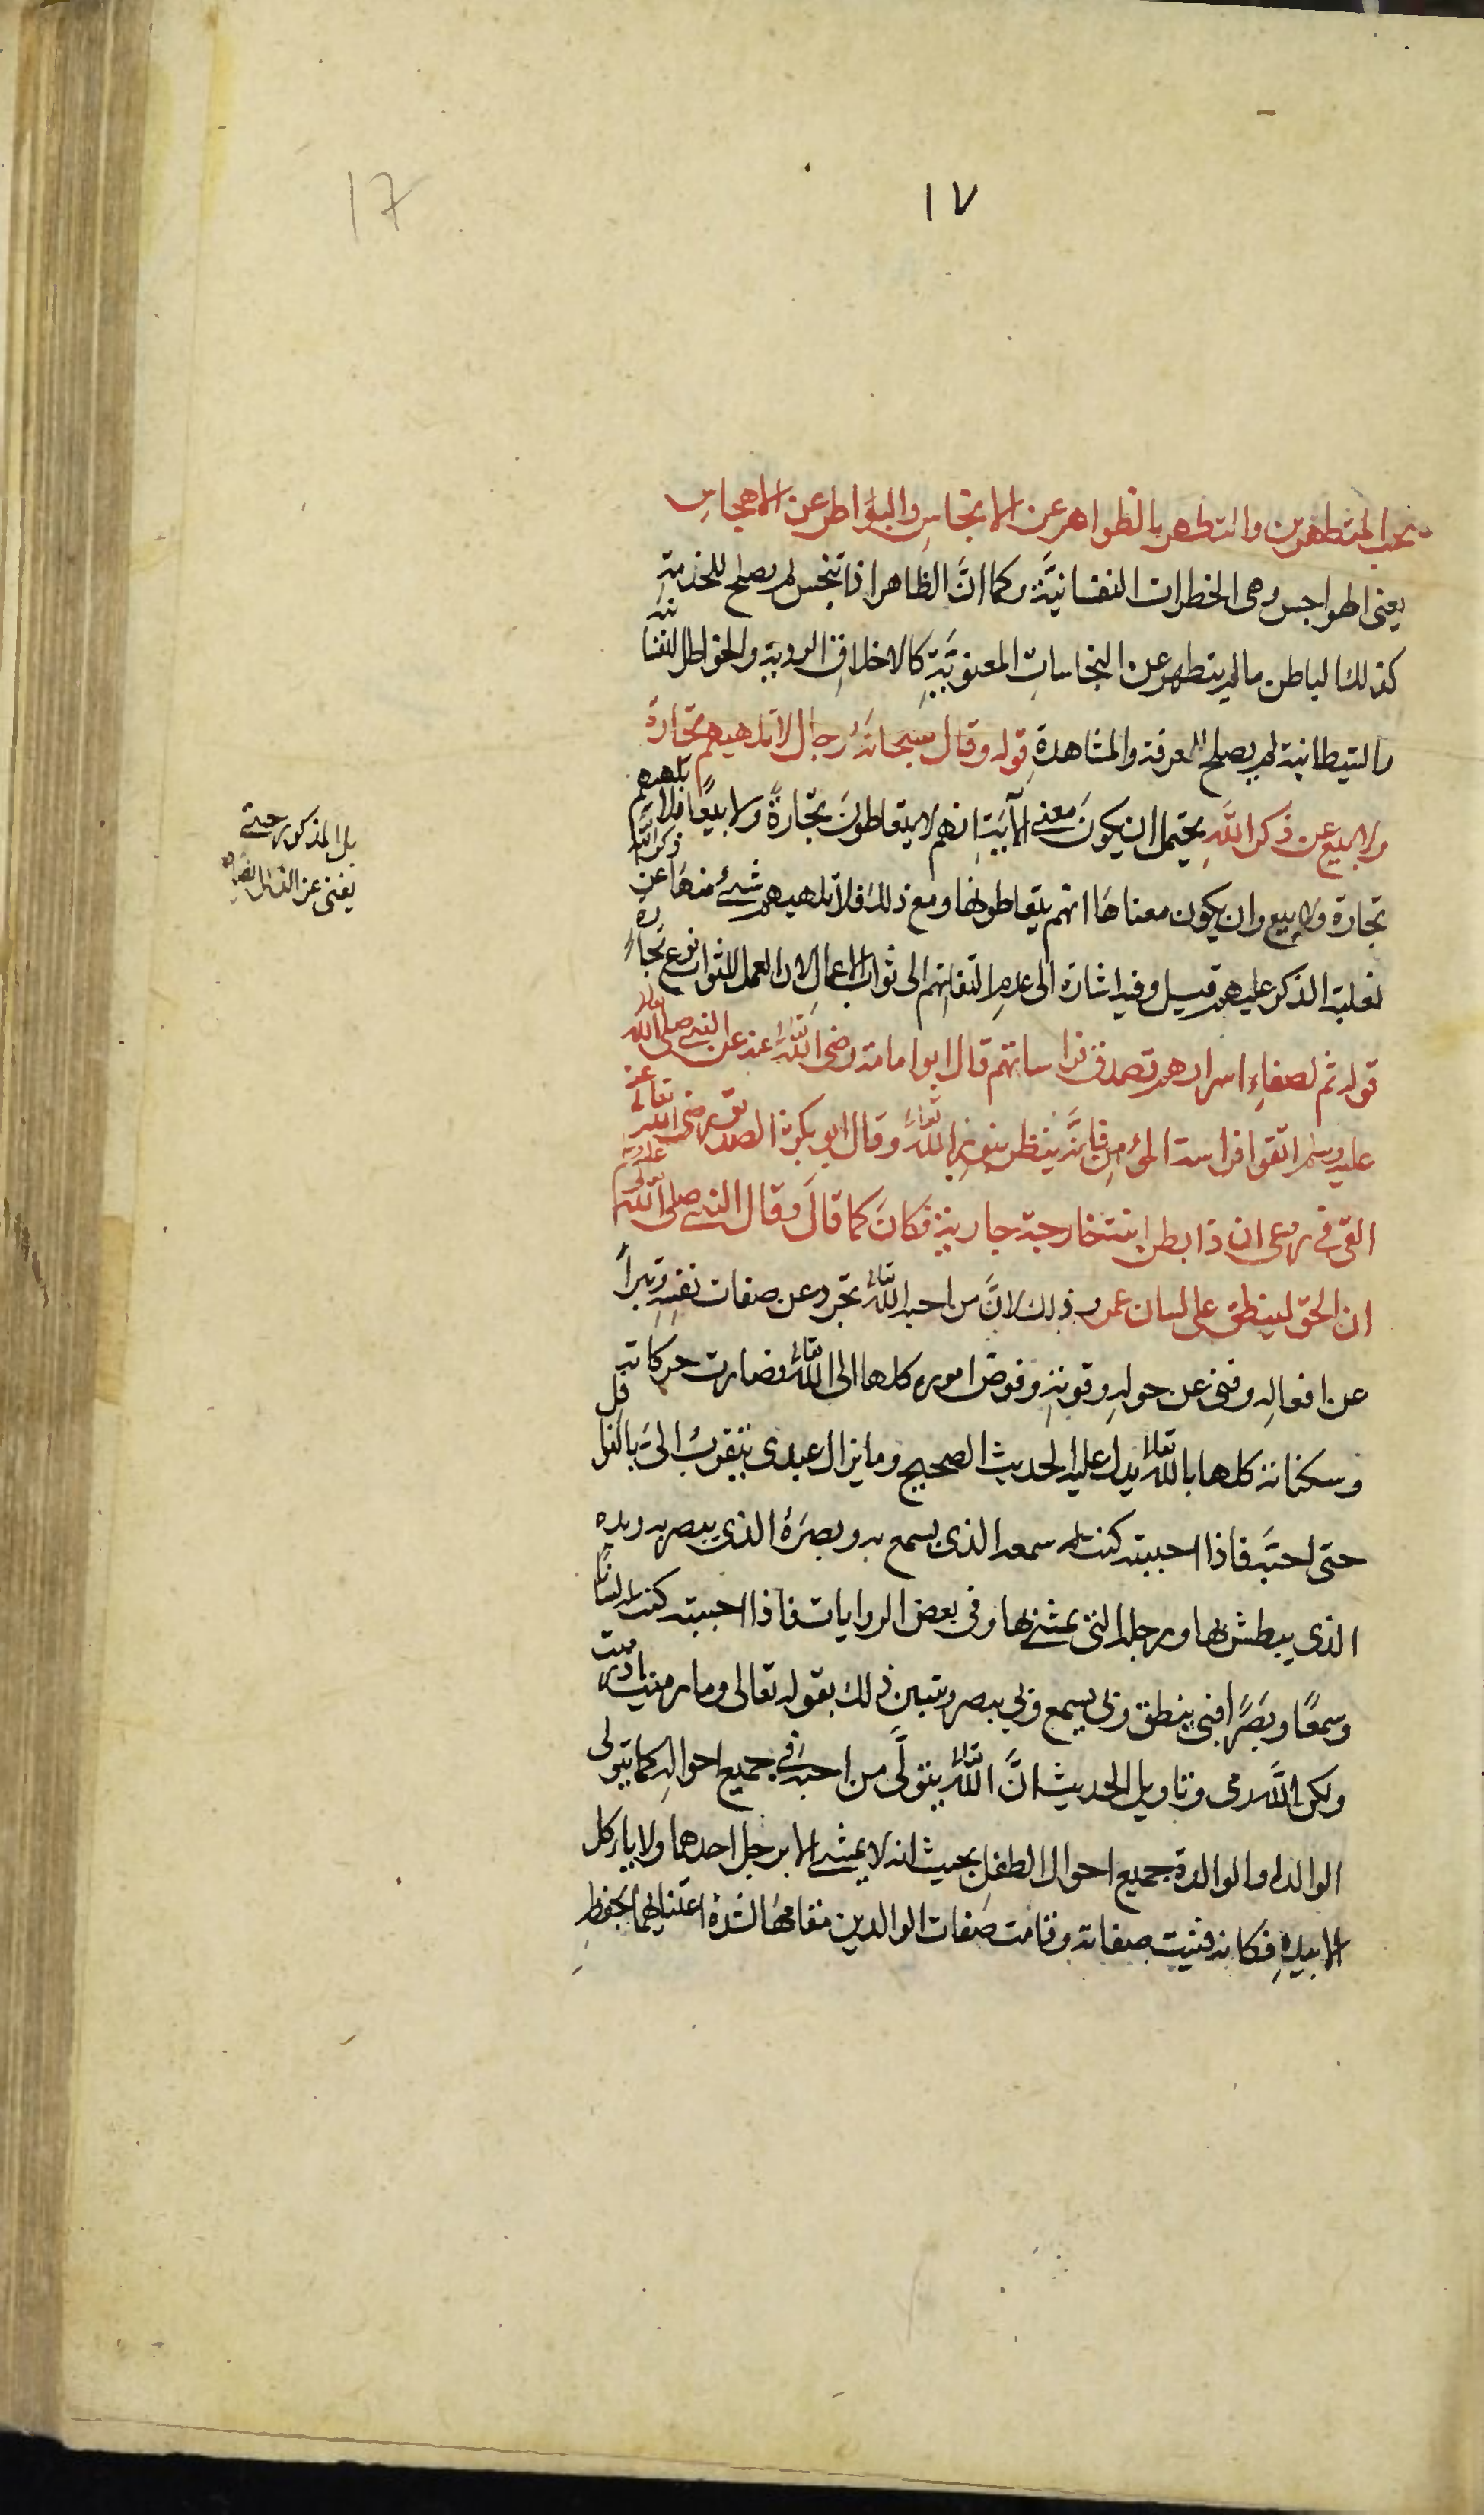 ١٧
17
يحب المتطهرين والتطهر بالظواهر عن الانجاس والبواطن عن الاهجاس
يعنى الهواجس وهى الخطرات النفسانيَّة وكما انَّ الظاهر اذا تنجس لم يصلح للخدمةِ
كذلك الباطن مالم يتطهر عن النجاساتِ المعنويَّةِ كالاخلاقِ الردية والخواطر النفسانية
والشيطانية لم يصلح للمعرفة والمشاهدةِ قوله وقال سبحانه رجال لا تلهيهم تجارة
ولا بيع عن ذكر اللَّهِ يحتمل ان يكونَ معنى الآيَتِ انهم لا يتعاطونَ تجارةً ولا بيعًا فلا تلهيهم
تجارة ولا بيع وان يكون معناهَا انهم يتعاطونها ومع ذلك فلا تلهيهم شئ منهَا عن ذكر اللَّه
لغلبة الذكر عليهم قيل وفيه اشارة الى عدمِ التفاتهم الى ثواب الاعمال لان العمل للثواب نوع تجارة
قوله ثم لصفاءِ اسرارهم تصدق فراساتهم قال ابو امامة رضى اللَّه تعالى عنه عن النبى صلى اللَّه تعالى
عليه وسلم اتقوا فراسة المؤمِن فانَّه ينظر بنورِ اللَّه تعالى وقال ابو بكر الصديق رضى اللَّه تعالى عنه
القى فى روعى ان ذا بطن ابنت خارجة جارية فكانَ كما قالَ وقال النبى صلى اللَّه تعالى عليه وسلم
ان الحق لينطق على لسان عمر وذلك لانَّ من احبه اللَّه تعالى تجرد عن صفات نفسِهِ وتبرأ
عن افعالِه وفنى عن حولهِ وقوتهِ وفوض اموره كلها الى اللَّه تعالى فصارت حركاته
وسكناته كلها باللَّه تعالى يدل عليه الحديث الصحيح وما يزال عبدى يتقربُ الىَّ بالنوافل
حتى احبَّه فاذا احببته كنت له سمعه الذى يسمع به وبصرَهُ الذى يبصر به ويده
الذى يبطش بها ورجله التى يمشى بها وفى بعض الروايات فاذا احببته كنت له لسانًا
وسمعًا وبصَرًا فبى ينطق وبى يسمع وبى يبصر وتبين ذلك بقوله تعالى وما رميت اذ رميت
ولكن اللَّه رمى وتاويل الحديث انَّ اللَّه تعالى يتولَّى من احبهُ فى جميع احوالهِ كما يتولى
الوالد او الوالدة جميع احوال الطفلِ بحيث انه لا يمشى الا برجل احدهما ولا ياءكل
الا بيدهِ فكانه فنيت صفاته وقامت صفات الوالدين مقامهَا لشدة اعتنائهما بحفظِهِ
بل المذكور حتى
يفنى عن القال